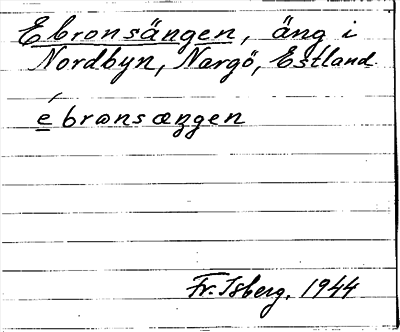 Ebronsängen, äng i
Nordbyn, Nargö, Estland
ebronsæŋen
Fr. Isberg. 1944